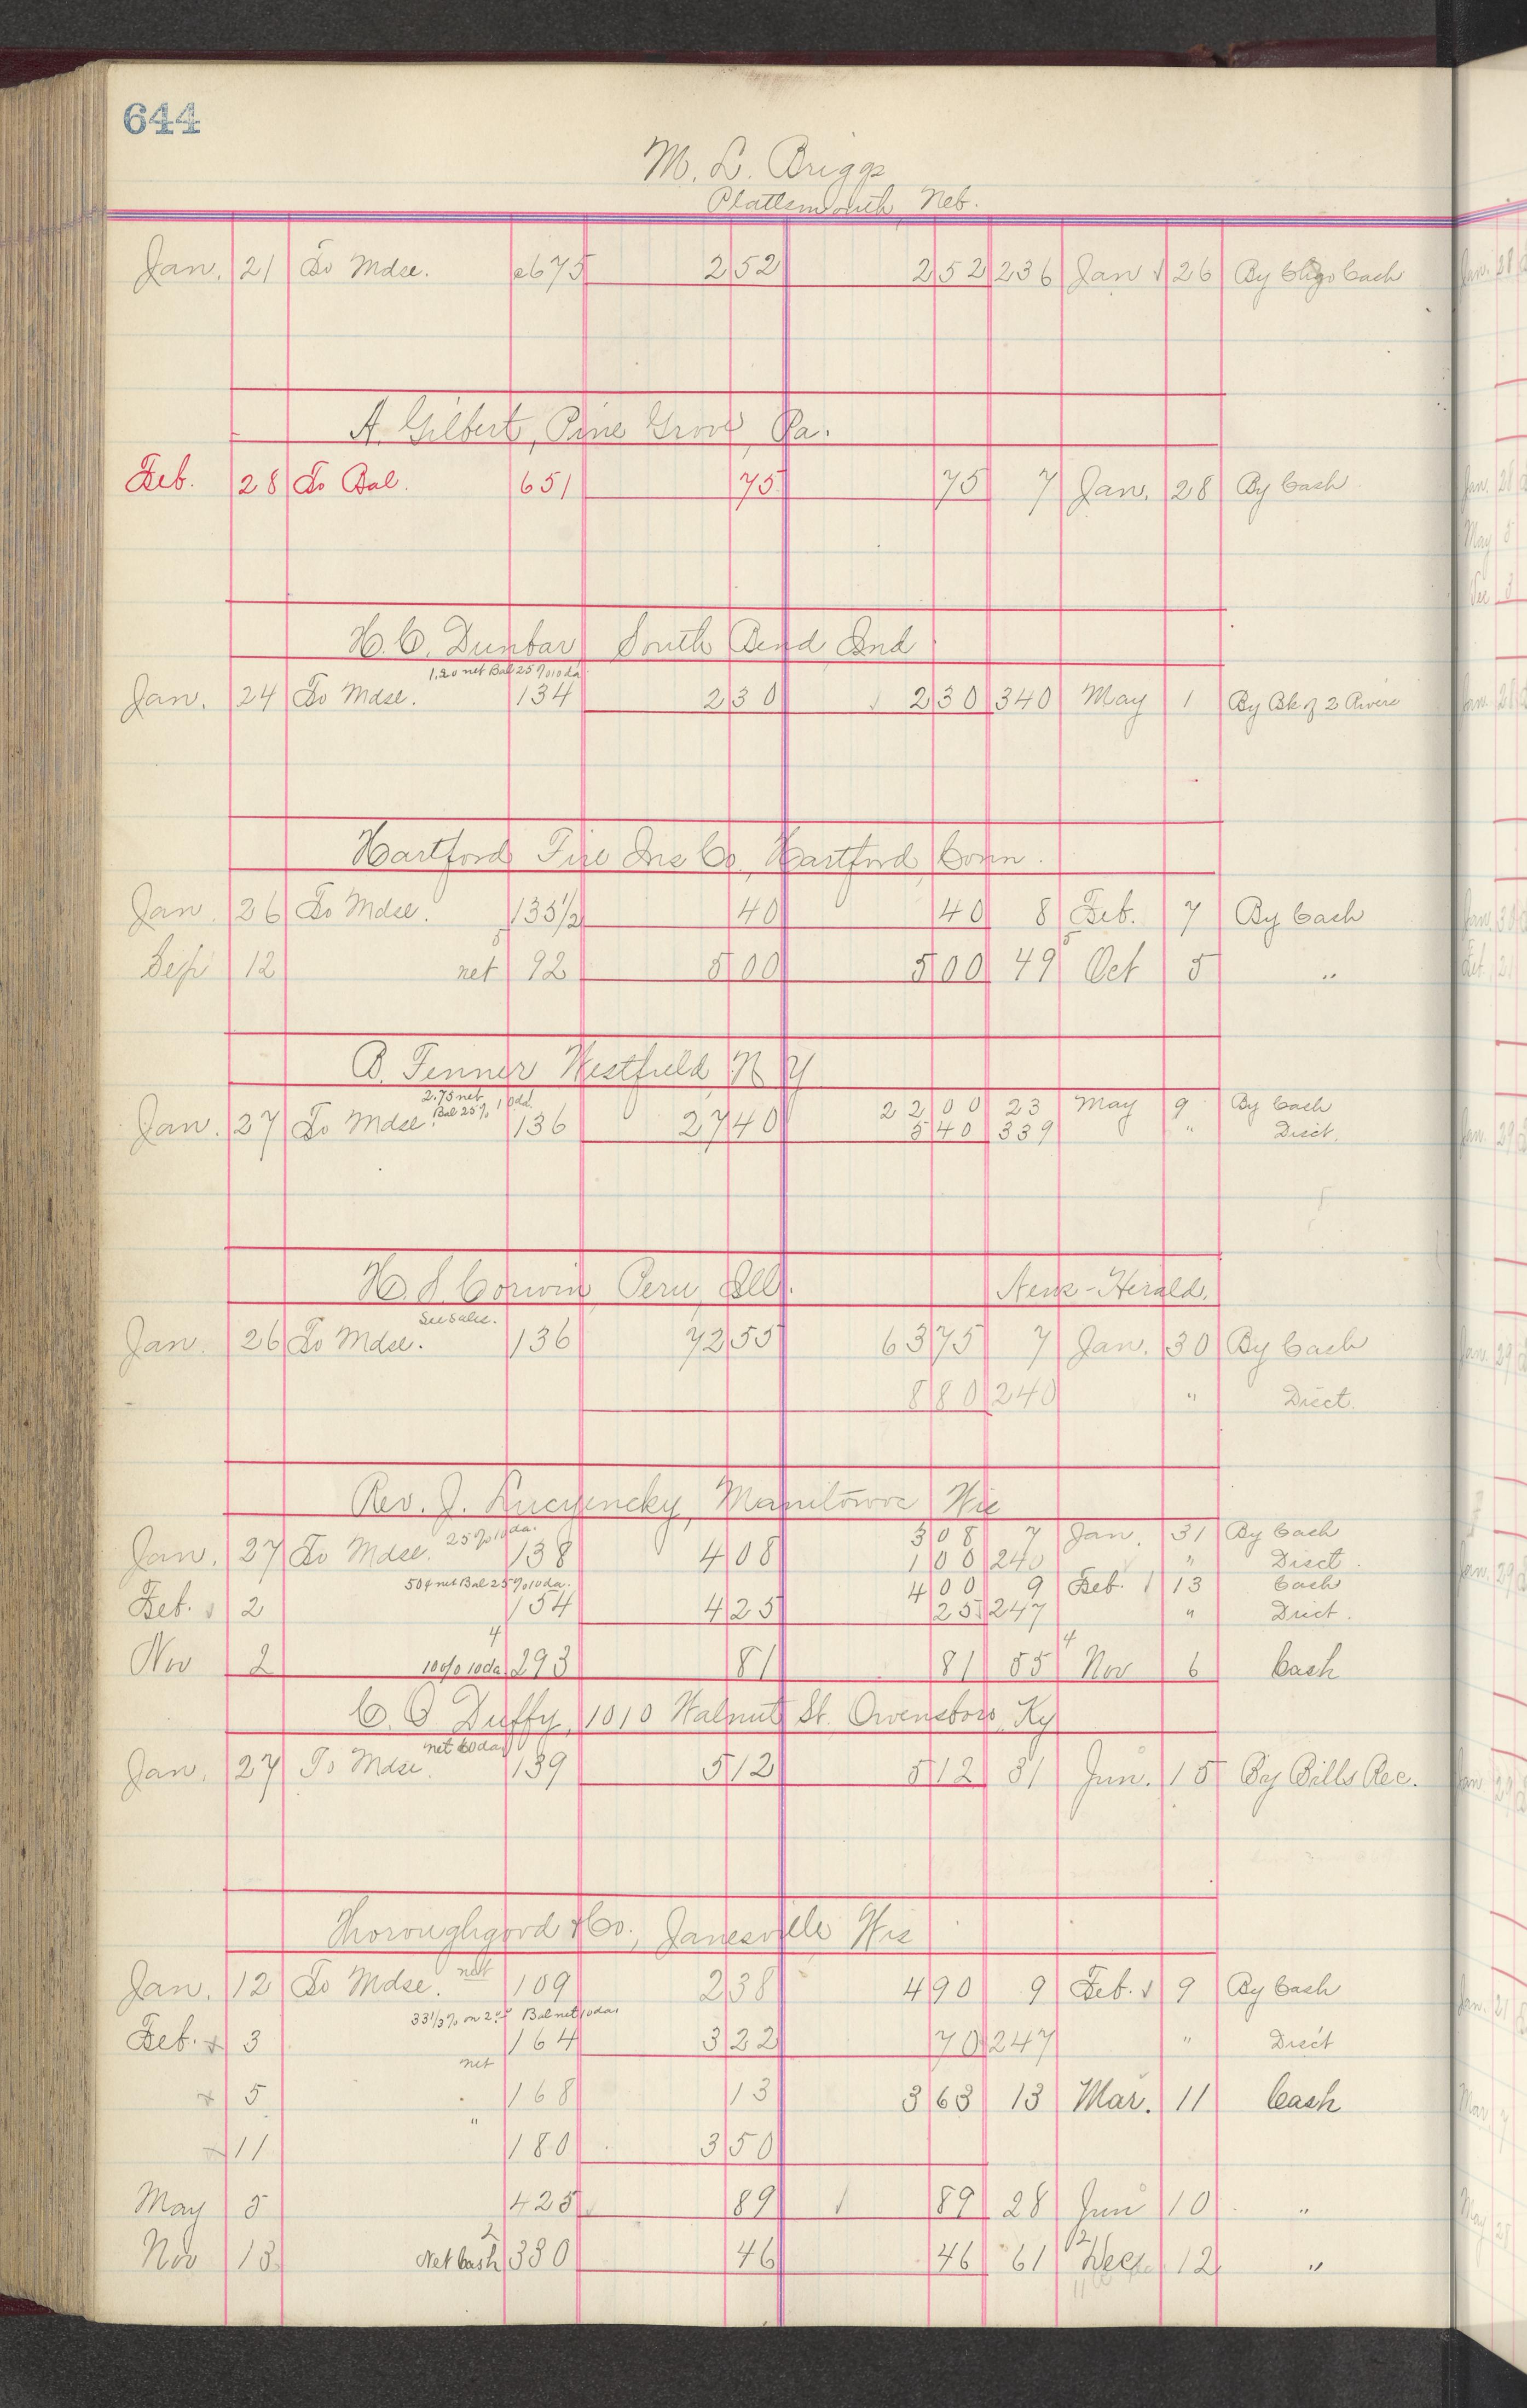 644
M. L. Briggs
Plattsmouth, Neb.
Jan. 21 To Mdse. 675 2 52 2 52 236 Jan 26 By Chgo Cash
A. Gilbert, Pine Grove, Pa.
Feb. 28 To Bal. 651 75 75 7 Jan. 28 By Cash
H. C. Dunbar South Bend Ind
1.20 net Bal 25% 10 da
Jan. 24 To Mdse. 134 2 30 2 30 340 May 1 By Bk of 2 Rivers
Hartford Fire Ins Co., Hartford, Conn.
Jan 26 To Mdse. 135 1/2 40 40 8 Feb. 7 By Cash
5 5
Sep 12 net 92 5 00 5 00 49 Oct 5 "
B. Fenner Westfield, N Y
2.75 net
Bal 25% 10 da.
22 00 23 May 9 By Cash
Jan. 27 To Mdse. 136 27 40 5 40 339 " Disct.
H. S. Corwin Peru, Ill. News-Herald.
See sales.
Jan. 26 To Mdse. 136 72 55 63 75 7 Jan. 30 By Cash
8 80 240 " Disct.
Rev. J. Manitowoc Wis
25% 10 da.
3 08 7 Jan. 31 By Cash
Jan. 27 To Mdse. 138 4 08 1 00 240 " Disct.
50¢ net Bal 25% 10 da.
4 00 9 Feb. 13 Cash
Feb. 2 154 4 25 25 247 " Disct.
4 4
Nov 2 10% 10 da 293 81 81 55 Nov 6 Cash
C. O Duffy, 1010 Walnut St. Owensboro, Ky
net 60 da
Jan. 27 To Mdse. 139 5 12 5 12 31 Jun. 15 By Bills Rec.
Thoroughgood & Co., Janesville Wis
Jan. 12 To Mdse. net 109 2 38 4 90 9 Feb. 9 By Cash
33 1/3% on 2.00 Bal net 10 da
Feb. x 3 164 3 22 70 247 " Disct
net
x 5 168 13 3 63 13 Mar. 11 Cash
"
x 11 180 3 50
May 5 425 89 89 28 Jun 10 "
2 12
Nov 13 Net Cash 380 46 46 61 Dec 12 "